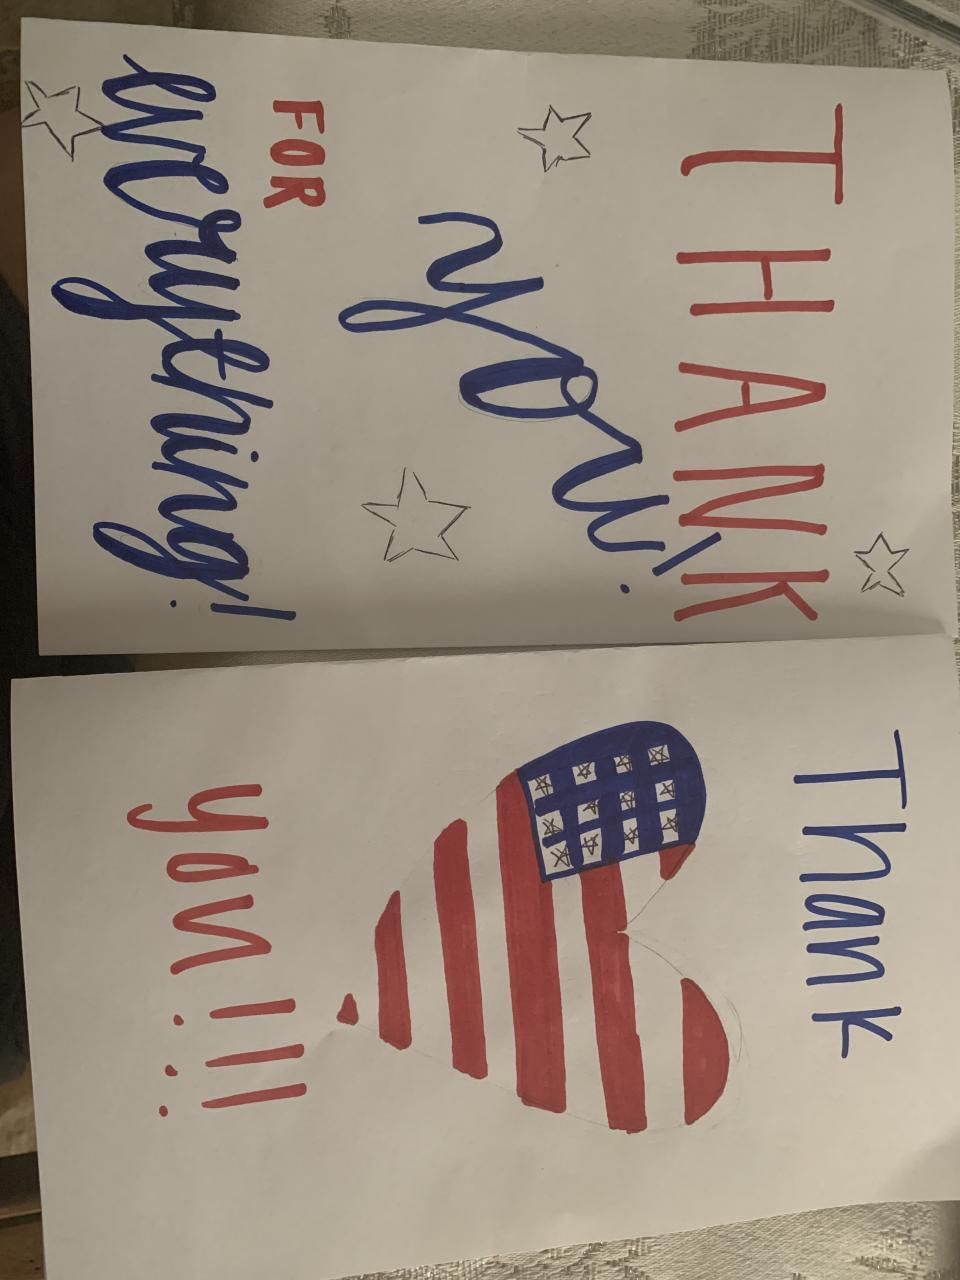 THANK
you!
FOR
everything!
Thank
you!!!